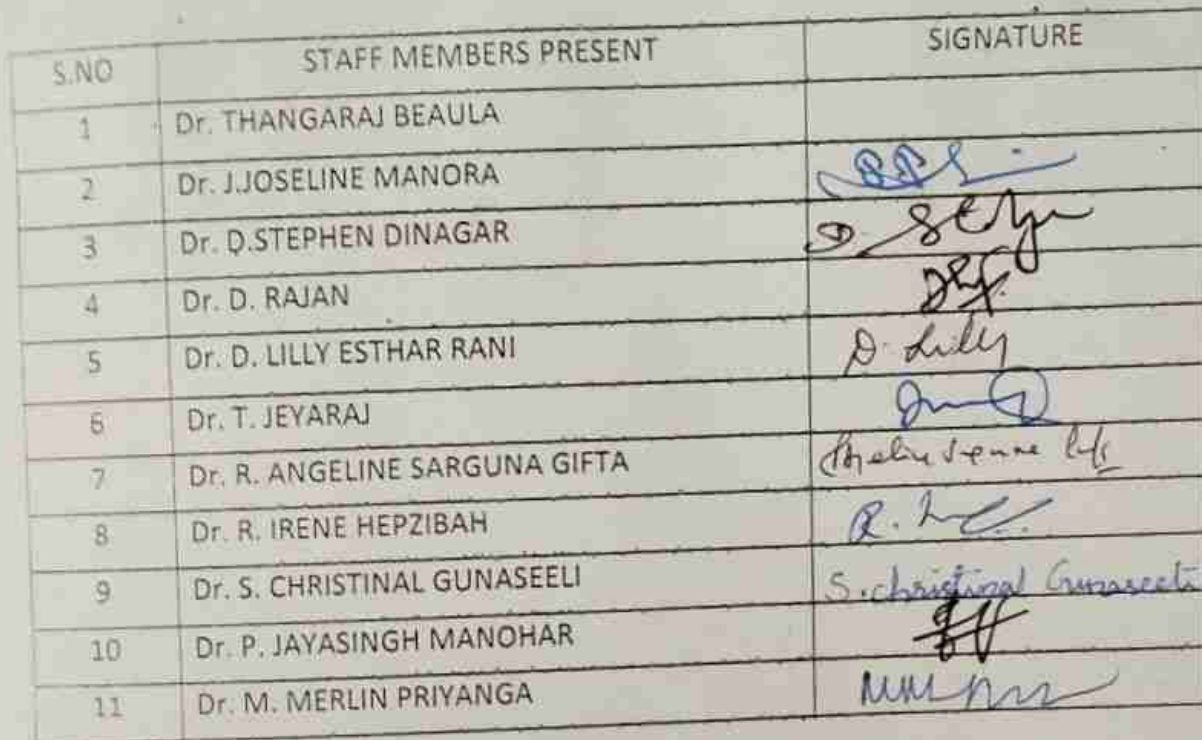 S.NO STAFF MEMBERS PRESENT SIGNATURE
1 Dr. THANGARAJ BEAULA
2 Dr. J.JOSELINE MANORA
3 Dr. D.STEPHEN DINAGAR
4 Dr. D. RAJAN
5 Dr. D. LILLY ESTHAR RANI D. Lilly
6 Dr. T. JEYARAJ
7 Dr. R. ANGELINE SARGUNA GIFTA
8 Dr. R. IRENE HEPZIBAH
9 Dr. S. CHRISTINAL GUNASEELI S. christinal Gunaseeli
10 Dr. P. JAYASINGH MANOHAR
11 Dr. M. MERLIN PRIYANGA